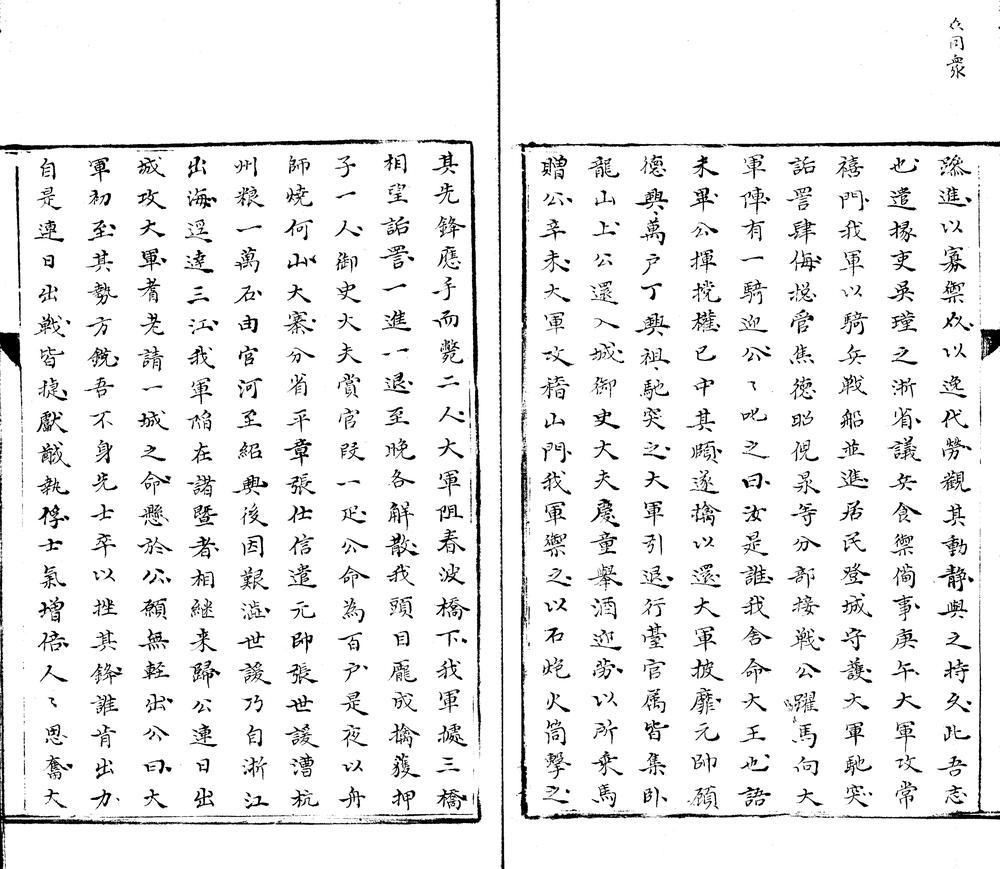 众同衆
進以寡禦众以逸代勞觀其動静與之持久此吾志
也遣掾吏吳瑾之浙省議兵食禦僃事庚午大軍攻常
禧門我軍以騎兵戦船並進居民登城守護大軍馳突
詬詈肆侮揔管焦德昭倪昶等分部接戦公躍馬向大
軍陣有一騎迎公〻叱之曰汝是誰我舍命大王也語
未畢公揮已中其頤遂擒以還大軍披靡元帥顧
德興萬户丁興祖馳突之大軍引退行臺官属皆集卧
龍山上公還入城御史大夫慶童舉酒迎勞以所乗馬
贈公辛未大軍攻稽山門我軍禦之以石炮火筒擊之
其先鋒應手而斃二人大軍阻春波橋下我軍據三橋
相望詬詈一進一退至晚各解散我頭目龎成擒獲押
子一人御史大夫賞官段一疋公命為百户是夜以舟
師燒何山大寨分省平章張仕信遣元帥張世諼漕杭
州粮一萬石由官河至紹興後因艱澁世諼乃自浙江
出海逕達三江我軍陷在諸暨者相継来歸公連日出
城攻大軍耆老請一城之命懸於公願無軽出公曰大
軍初至其勢方銳吾不身先士卒以挫其鋒誰肯出力
自是連日出戦皆捷獻馘執俘士氣增倍人〻思奮大